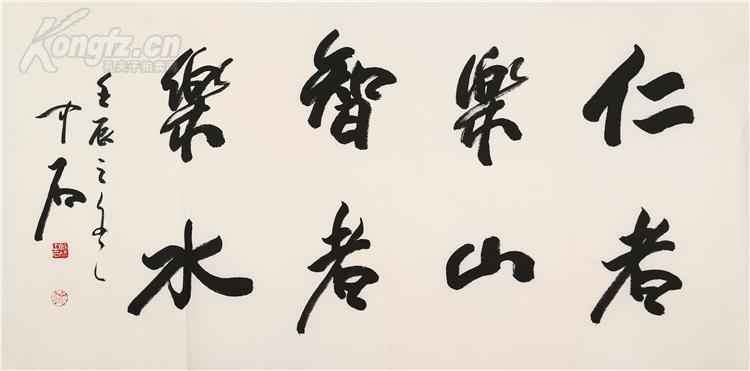 仁者
樂山
智者
樂水
壬辰之冬
中石
Kongfz.cn
孔夫子拍卖网